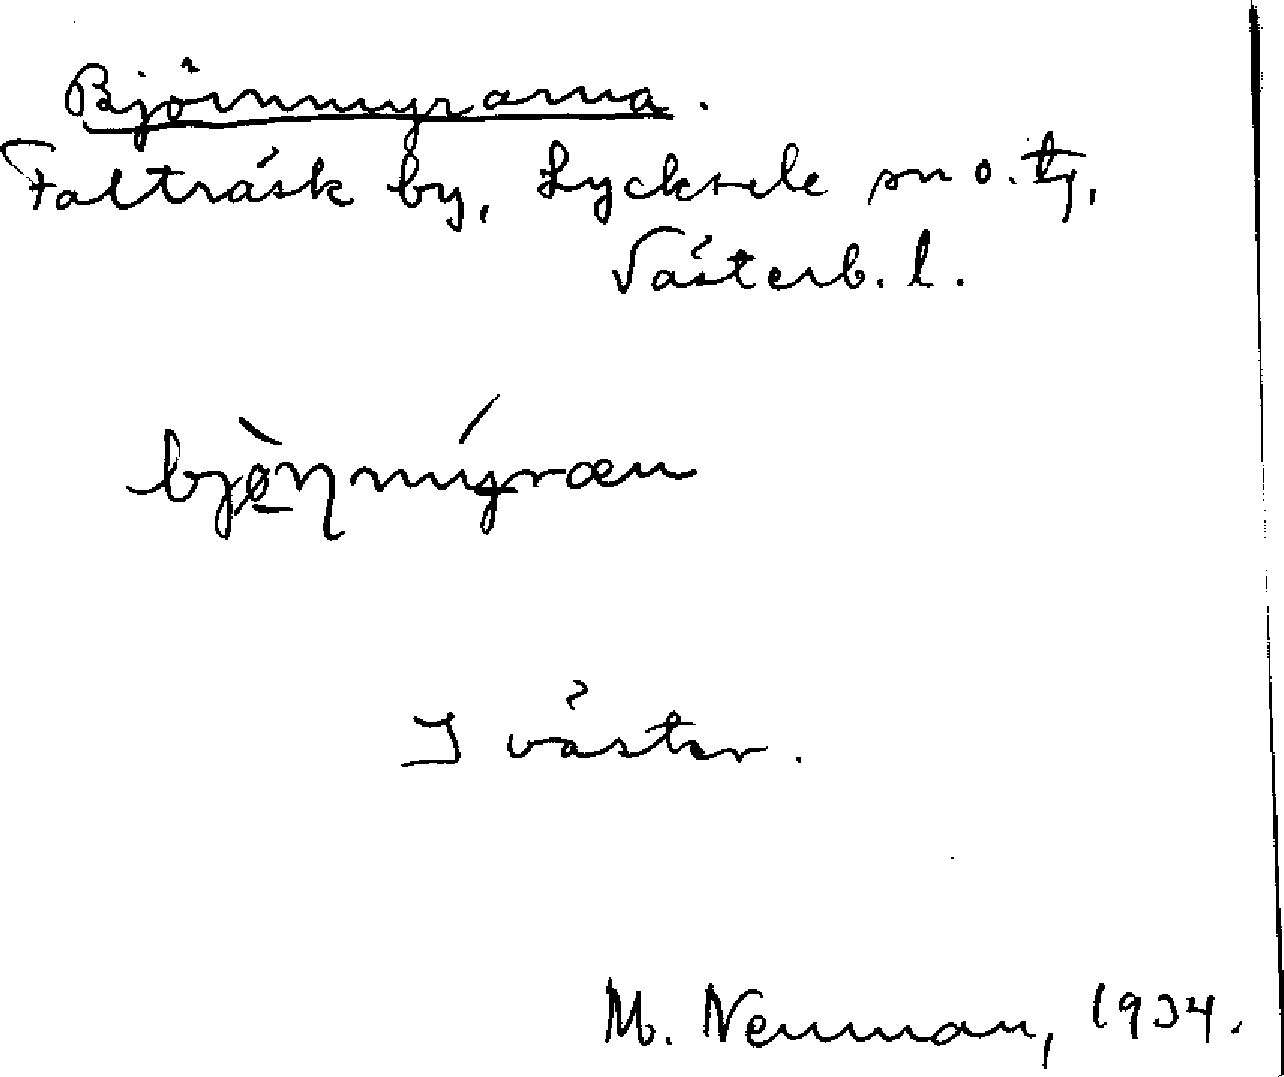 Björnmyrarna.
Falträsk by, Lycksele sn o. tg,
Västerb. l.
bjø̀ṇmýræn
I väster.
M. Neuman, 1934.